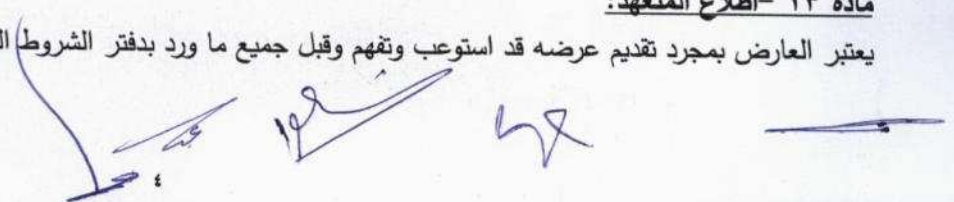 مادة ١٣ -اطلاع المتعهد:
يعتبر العارض بمجرد تقديم عرضه قد استوعب وتفهم وقبل جميع ما ورد بدفتر الشروط
٤